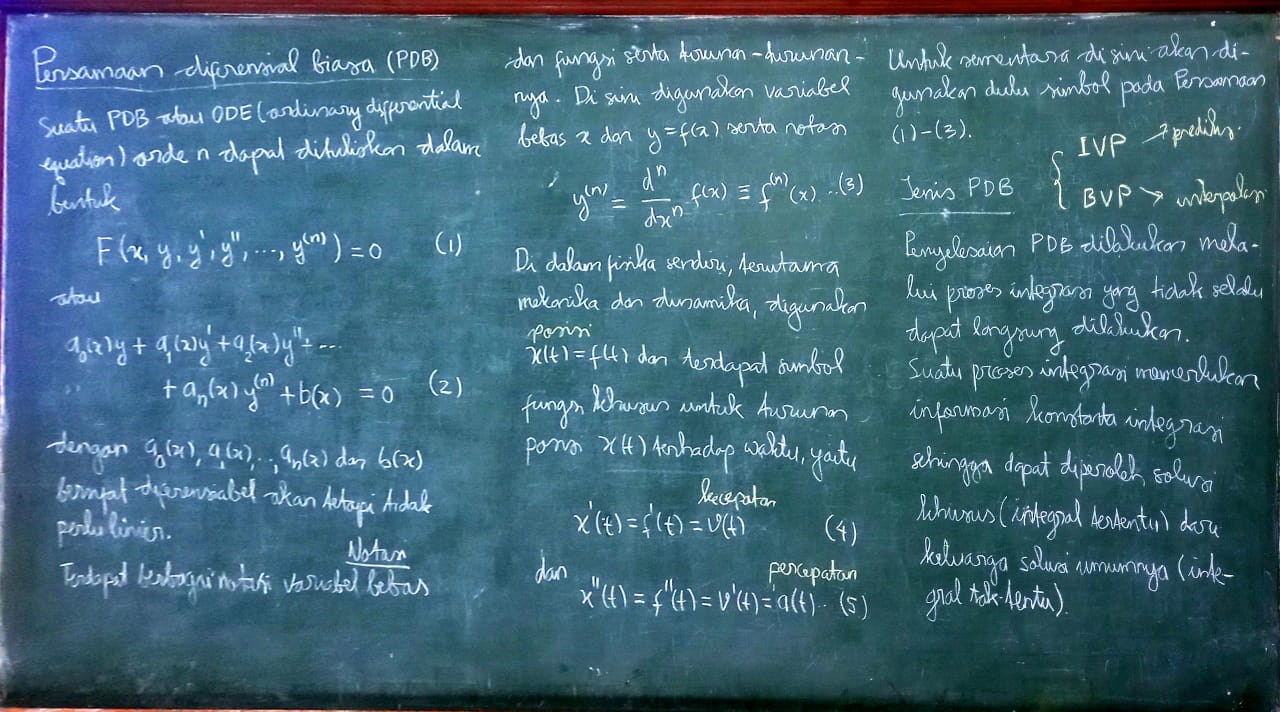 Persamaan diferensial biasa (PDB)
Suatu PDB atau ODE (ordinary differential
equation) orde n dapat dituliskan dalam
bentuk
F(x, y, y', y'', ..., y⁽ⁿ⁾) = 0 (1)
atau
a₀(x)y + a₁(x)y' + a₂(x)y'' + ...
+ aₙ(x) y⁽ⁿ⁾ + b(x) = 0 (2)
dengan a₀(x), a₁(x), .., aₙ(x) dan b(x)
bersifat diferensiabel akan tetapi tidak
perlu linier.
Notasi
Terdapat berbagai notasi variabel bebas
dan fungsi serta turunan-turunan-
nya. Di sini digunakan variabel
bebas x dan y = f(x) serta notasi
y⁽ⁿ⁾ = dⁿ/dxⁿ f(x) ≡ f⁽ⁿ⁾(x) ...(3)
Di dalam fisika sendiri, terutama
mekanika dan dinamika, digunakan
posisi
x(t) = f(t) dan terdapat simbol
fungsi khusus untuk turunan
posisi x(t) terhadap waktu, yaitu
kecepatan
x'(t) = f'(t) = v(t) (4)
dan
percepatan
x''(t) = f''(t) = v'(t) = a(t) .. (5)
Untuk sementara di sini akan di-
gunakan dulu simbol pada Persamaan
(1) - (3).
IVP → prediksi
Jenis PDB
BVP → interpolasi
Penyelesaian PDB dilakukan mela-
lui proses integrasi yang tidak selalu
dapat langsung dilakukan.
Suatu proses integrasi memerlukan
informasi konstanta integrasi
sehingga dapat diperoleh solusi
khusus (integral tertentu) dari
keluarga solusi umumnya (inte-
gral tak-tentu).